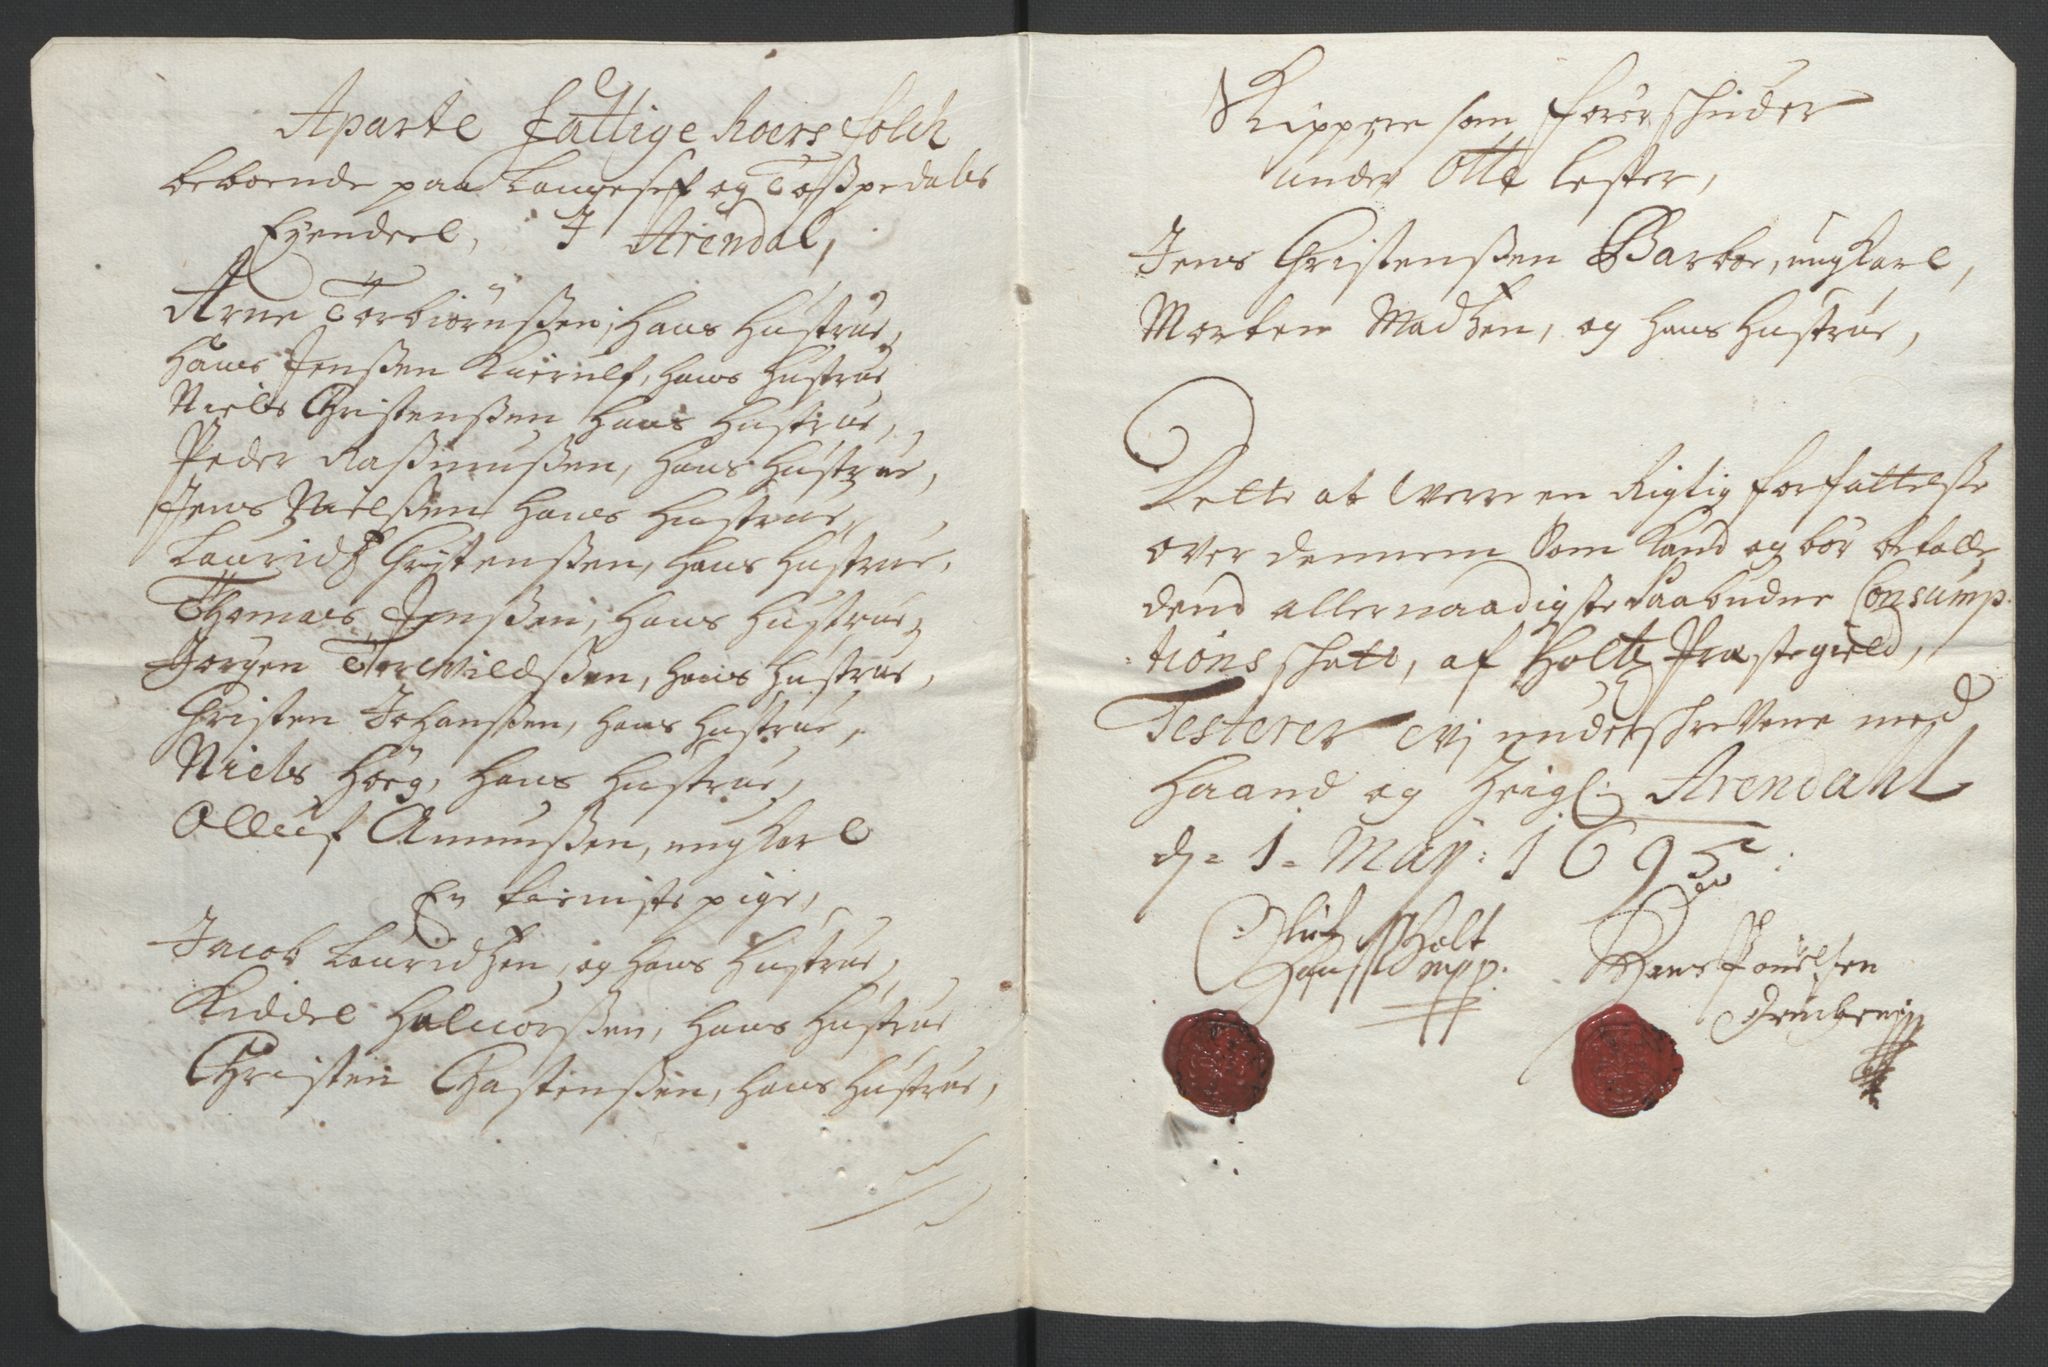 Aparte fattige Roers folck
beboende paa Langesef og Tosspedals
Eyendeel, I Arendal,
Arne Torbiörnssen, hans hustrue,
Hans Jenssen Kiërulf, hans hustrue
Niels Christenssen hans hustrue,
Peder Rassmussen, hans hustrue,
Jens Nielssen hans hustrue,
Lauridtz Christenssen, hans hustrue,
Thomas Jenssen, hans hustrue,
Jorgen Torewildssen, hans hustrue,
Christen Johanssen, hans hustrue,
Niels Höeg, hans hustrue,
Olluf Amunssen, ung karl
En tieniste pige,
Jacob Lauridtzen, og hans hustrue,
Kiddel Haluorssen, hans hustrue
Christen Chastenssen, hans hustrue,
Skippere somförer schuder
under Otte lester,
Jens Christenssen Barboe, ung karl,
Morten Madtzen, og hans hustrue,
Dette at Werre en Rigtig forfattelsse
over dennem som kand og bör betalle
dend allernaadigste paabudne Consump-
tions schatt, af Holte Præstegield,
Testerer Wj underschrevene med
Haand og Zeigl: Arendahl
dn 1. May: 1695:
Oluf Hanss Holt
mpp.
Hans Pouelsen